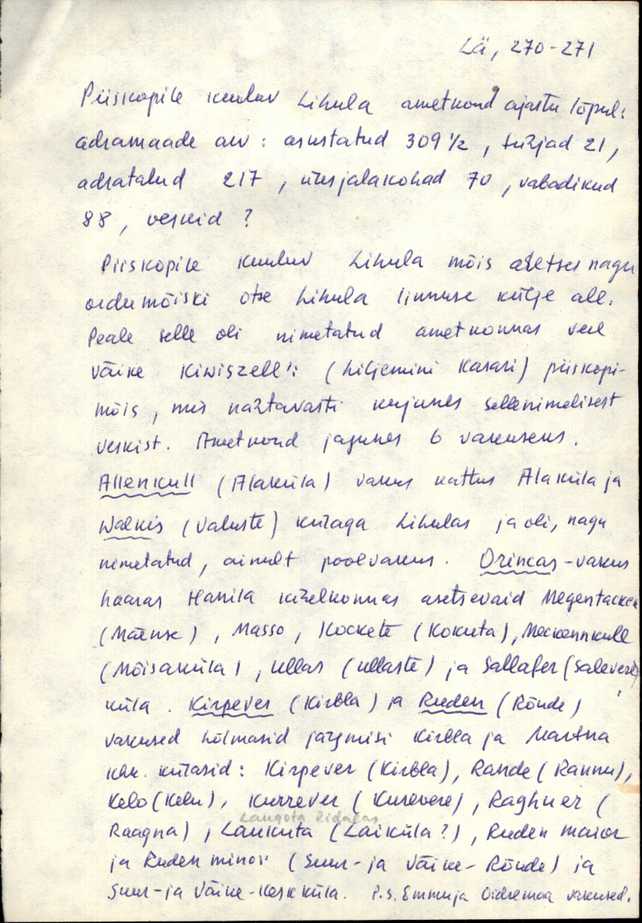 Lä, 270-271
Piiskopile kuuluv Lihula ametkond ajastu lõpul:
adramaade arv: asustatud 309 1/2, tühjad 21,
adratalud 217, üksjalakohad 70, vabadikud
88, veskid ?
Piiskopile kuuluv Lihula mõis asetses nagu
ordumõiski otse Lihula linnuse külje all.
Peale selle oli nimetatud ametkonnas veel
väike Kiwiszell': (hiljemini Kasari) piiskopi-
mõis, mis nähtavasti kujunes sellenimelisest
veskist. Ametkond jagunes 6 vakuseks.
Allenkull (Alaküla) vakus kattus Alaküla ja
Walkis (Valuste) külaga Lihulas ja oli, nagu
nimetatud, ainult poolvakus. Orincas-vakus
haaras Hanila kihelkonnas asetsevaid Megentacken
(Mäense), Masso, Kockete (Kokuta), Meckennkull
(Mõisaküla), Ullas (Ullaste) ja Sallafer (Salevere)
küla. Kirpever (Kirbla) ja Ruden (Rõude)
vakused hõlmasid järgmisi Kirbla ja Martna
khk. külasid: Kirpever (Kirbla), Rande (Rannu),
Kelo (Kelu), Kurrever (Kurevere), Raghuer (
Laugota Ridalas
Raagna), Laukuta (Laiküla?), Ruden maior
ja Ruden minor (Suur- ja Väike-Rõude) ja
Suur- ja Väike-Keskküla. P.S. Emmu ja Oidremaa vakused.